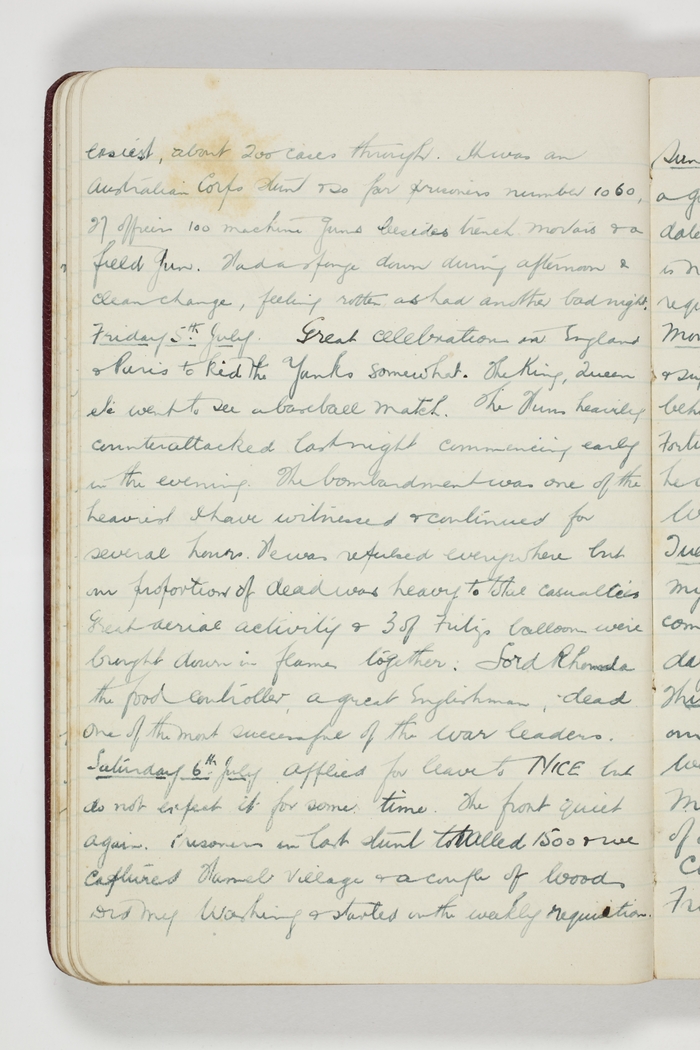 easiest, about 200 cases through. It was an
Australian Corps stunt & so far prisoners number 1060,
27 officers 100 machine guns besides trench mortars & a
field gun. Had a sponge down during afternoon &
clean change, feeling rotten as had another bad night.
Friday 5th July. Great celebrations in England
& Paris to kid the Yanks somewhat. The King, Queen
etc went to see a baseball match. The Huns heavily
counterattacked last night commencing early
in the evening. The bombardment was one of the
heaviest I have witnessed & continued for
several hours. He was repulsed everywhere but
our proportion of dead was heavy to the casualties
Great aerial activity & 3 of Fritzs balloons were
brought down in flames together. Lord Rhondda
the food controller, a great Englishman, dead
one of the most successful of the war leaders.
Saturday 6th July applied for leave to NICE but
do not expect it for some time. The front quiet
again. Prisoners in last stunt totalled 1500 & we
captured Hamel Village & a couple of woods
Did my washing & started on the weekly requisition.
Sun
a g
date
is n
requ
Mon
& su
beh
Fort
he
Tue
my
com
da
this
our
M
of
Fr